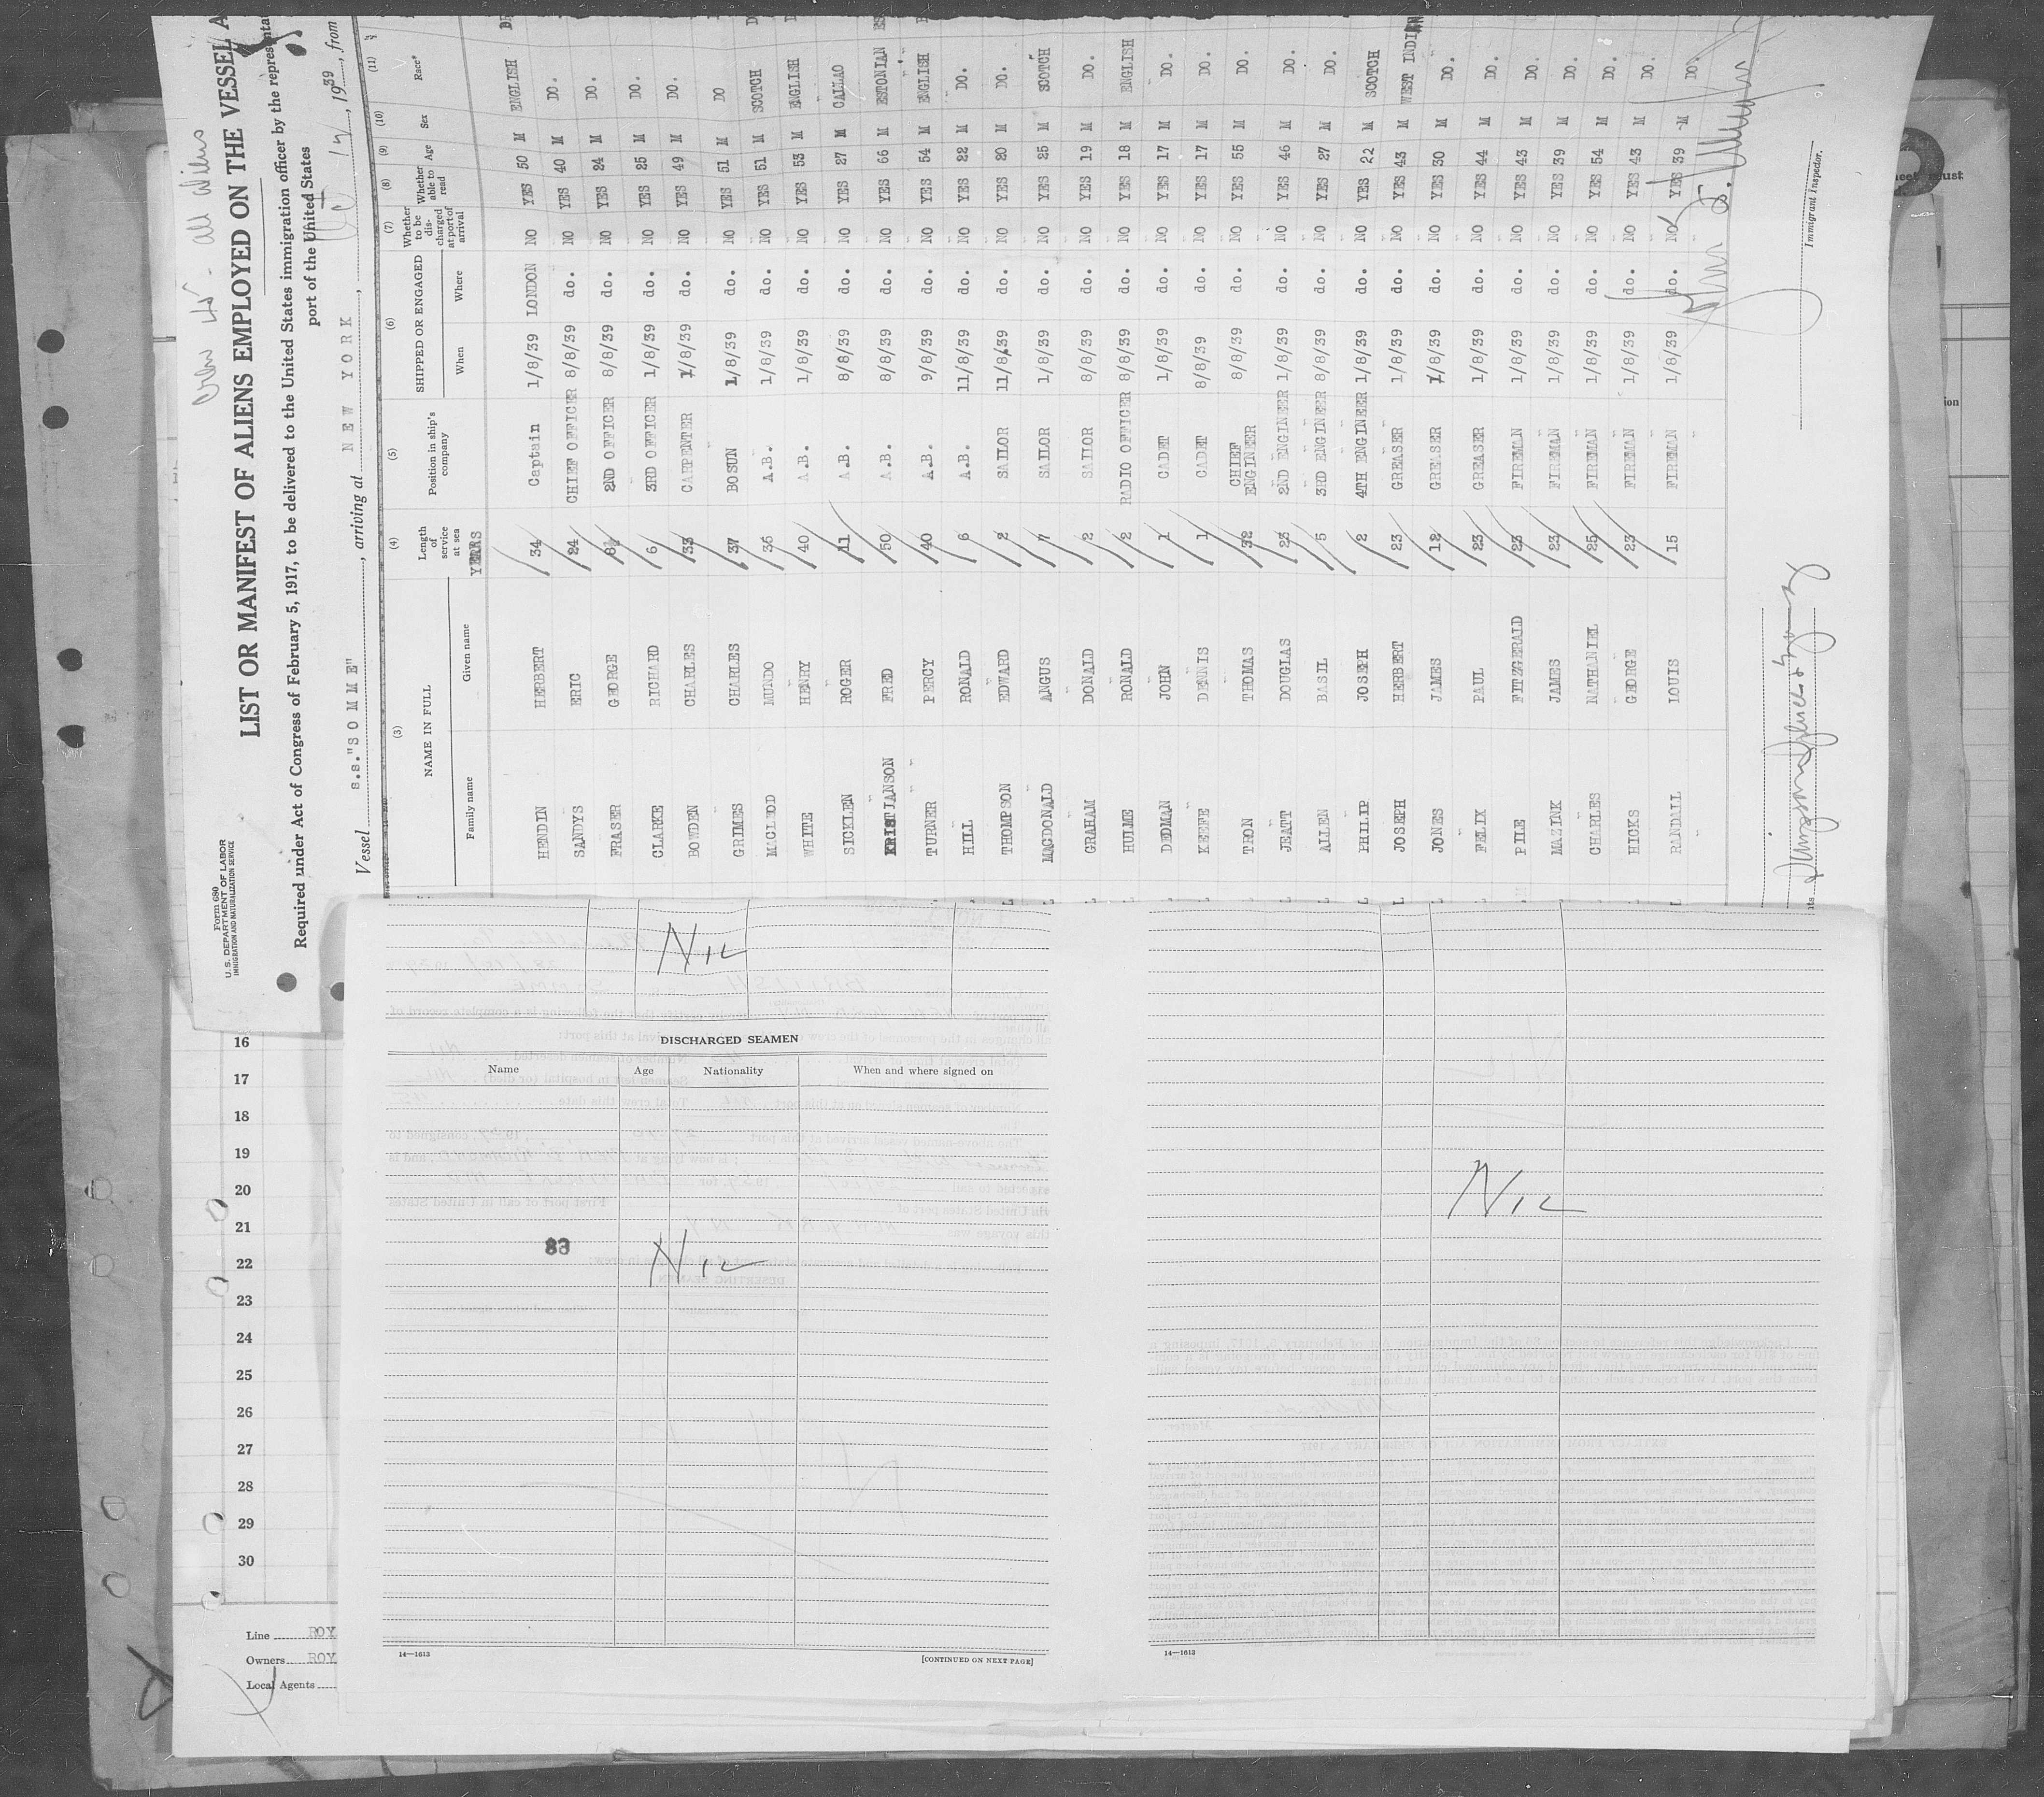 Form 680
U. S. DEPARTMENT OF LABOR
IMMIGRATION AND NATURALIZATION SERVICE
Crew 45 - all aliens
LIST OR MANIFEST OF ALIENS EMPLOYED ON THE VESSEL A
Required under Act of Congress of February 5, 1917, to be delivered to the United States immigration officer by the representa
port of the United States
Vessel s.s."SOMME", arriving at NEW YORK, 1939, from
(3) (4) (5) (6) (7) (8) (9) (10) (11)
NAME IN FULL Length of service at sea Position in ship's company SHIPPED OR ENGAGED Whether to be discharged at port of arrival Whether able to read Age Sex Race*
Family name Given name YEARS When Where
HENDIN HERBERT 34 Captain 1/8/39 LONDON NO YES 50 M ENGLISH
SANDYS ERIC 24 CHIEF OFFICER 8/8/39 do. NO YES 40 M DO.
FRASER GEORGE 8½ 2ND OFFICER 8/8/39 do. NO YES 24 M DO.
CLARKE RICHARD 6 3RD OFFICER 1/8/39 do. NO YES 25 M DO.
BOWDEN CHARLES 33 CARPENTER 1/8/39 do. NO YES 49 M DO.
GRIMES CHARLES 37 BOSUN 1/8/39 do. NO YES 51 M DO
MACLEOD MUNDO 36 A.B. 1/8/39 do. NO YES 51 M SCOTCH
WHITE HENRY 40 A.B. 1/8/39 do. NO YES 53 M ENGLISH
SICKLEN ROGER 11 A.B. 8/8/39 do. NO YES 27 M CALLAO
KRISTIANSON FRED 50 A.B. 8/8/39 do. NO YES 66 M ESTONIAN
TURNER PERCY 40 A.B. 9/8/39 do. NO YES 54 M ENGLISH
HILL RONALD 6 A.B. 11/8/39 do. NO YES 22 M DO.
THOMPSON EDWARD 2 SAILOR 11/8/39 do. NO YES 20 M DO.
MACDONALD ANGUS 7 SAILOR 1/8/39 do. NO YES 25 M SCOTCH
GRAHAM DONALD 2 SAILOR 8/8/39 do. NO YES 19 M DO.
HULME RONALD 2 RADIO OFFICER 8/8/39 do. NO YES 18 M ENGLISH
DEDMAN JOHN 1 CADET 1/8/39 do. NO YES 17 M DO.
KEEFE DENNIS 1 CADET 8/8/39 do. NO YES 17 M DO.
TRON THOMAS 32 CHIEF ENGINEER 8/8/39 do. NO YES 55 M DO.
JEATT DOUGLAS 23 2ND ENGINEER 1/8/39 do. NO YES 46 M DO.
ALLEN BASIL 5 3RD ENGINEER 8/8/39 do. NO YES 27 M DO.
PHILIP JOSEPH 2 4TH ENGINEER 1/8/39 do. NO YES 22 M SCOTCH
JOSEPH HERBERT 23 GREASER 1/8/39 do. NO YES 43 M WEST INDIAN
JONES JAMES 12 GREASER 1/8/39 do. NO YES 30 M DO.
FELIX PAUL 23 GREASER 1/8/39 do. NO YES 44 M DO.
PILE FITZGERALD 23 FIREMAN 1/8/39 do. NO YES 43 M DO.
MAZINK JAMES 23 FIREMAN 1/8/39 do. NO YES 39 M DO.
CHARLES NATHANIEL 25 FIREMAN 1/8/39 do. NO YES 54 M DO.
HICKS GEORGE 23 FIREMAN 1/8/39 do. NO YES 43 M DO.
RANDALL LOUIS 15 FIREMAN 1/8/39 do. NO YES 39 M DO.
Immigrant Inspector.
must
ion
16
17
18
19
20
21
22
23
24
25
26
27
28
29
30
Line ROY
Owners ROY
Local Agents
NIL
DISCHARGED SEAMEN
Name Age Nationality When and where signed on
83
NIL
14—1613
[CONTINUED ON NEXT PAGE]
NIL
14—1613